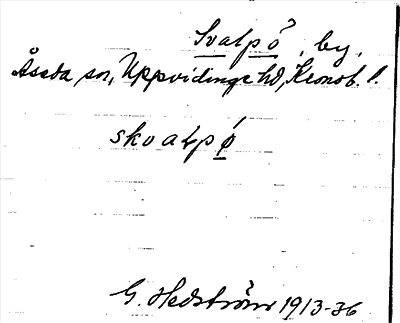 Svalpö, by,
Åseda sn, Uppvidinge hd, Kronob. l.
skvalpö
G. Hedström 1913-36